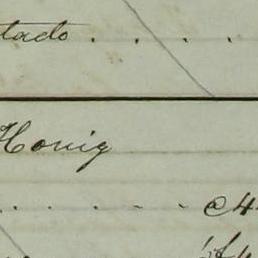 tado . . . .
Honig
. . . . . c4